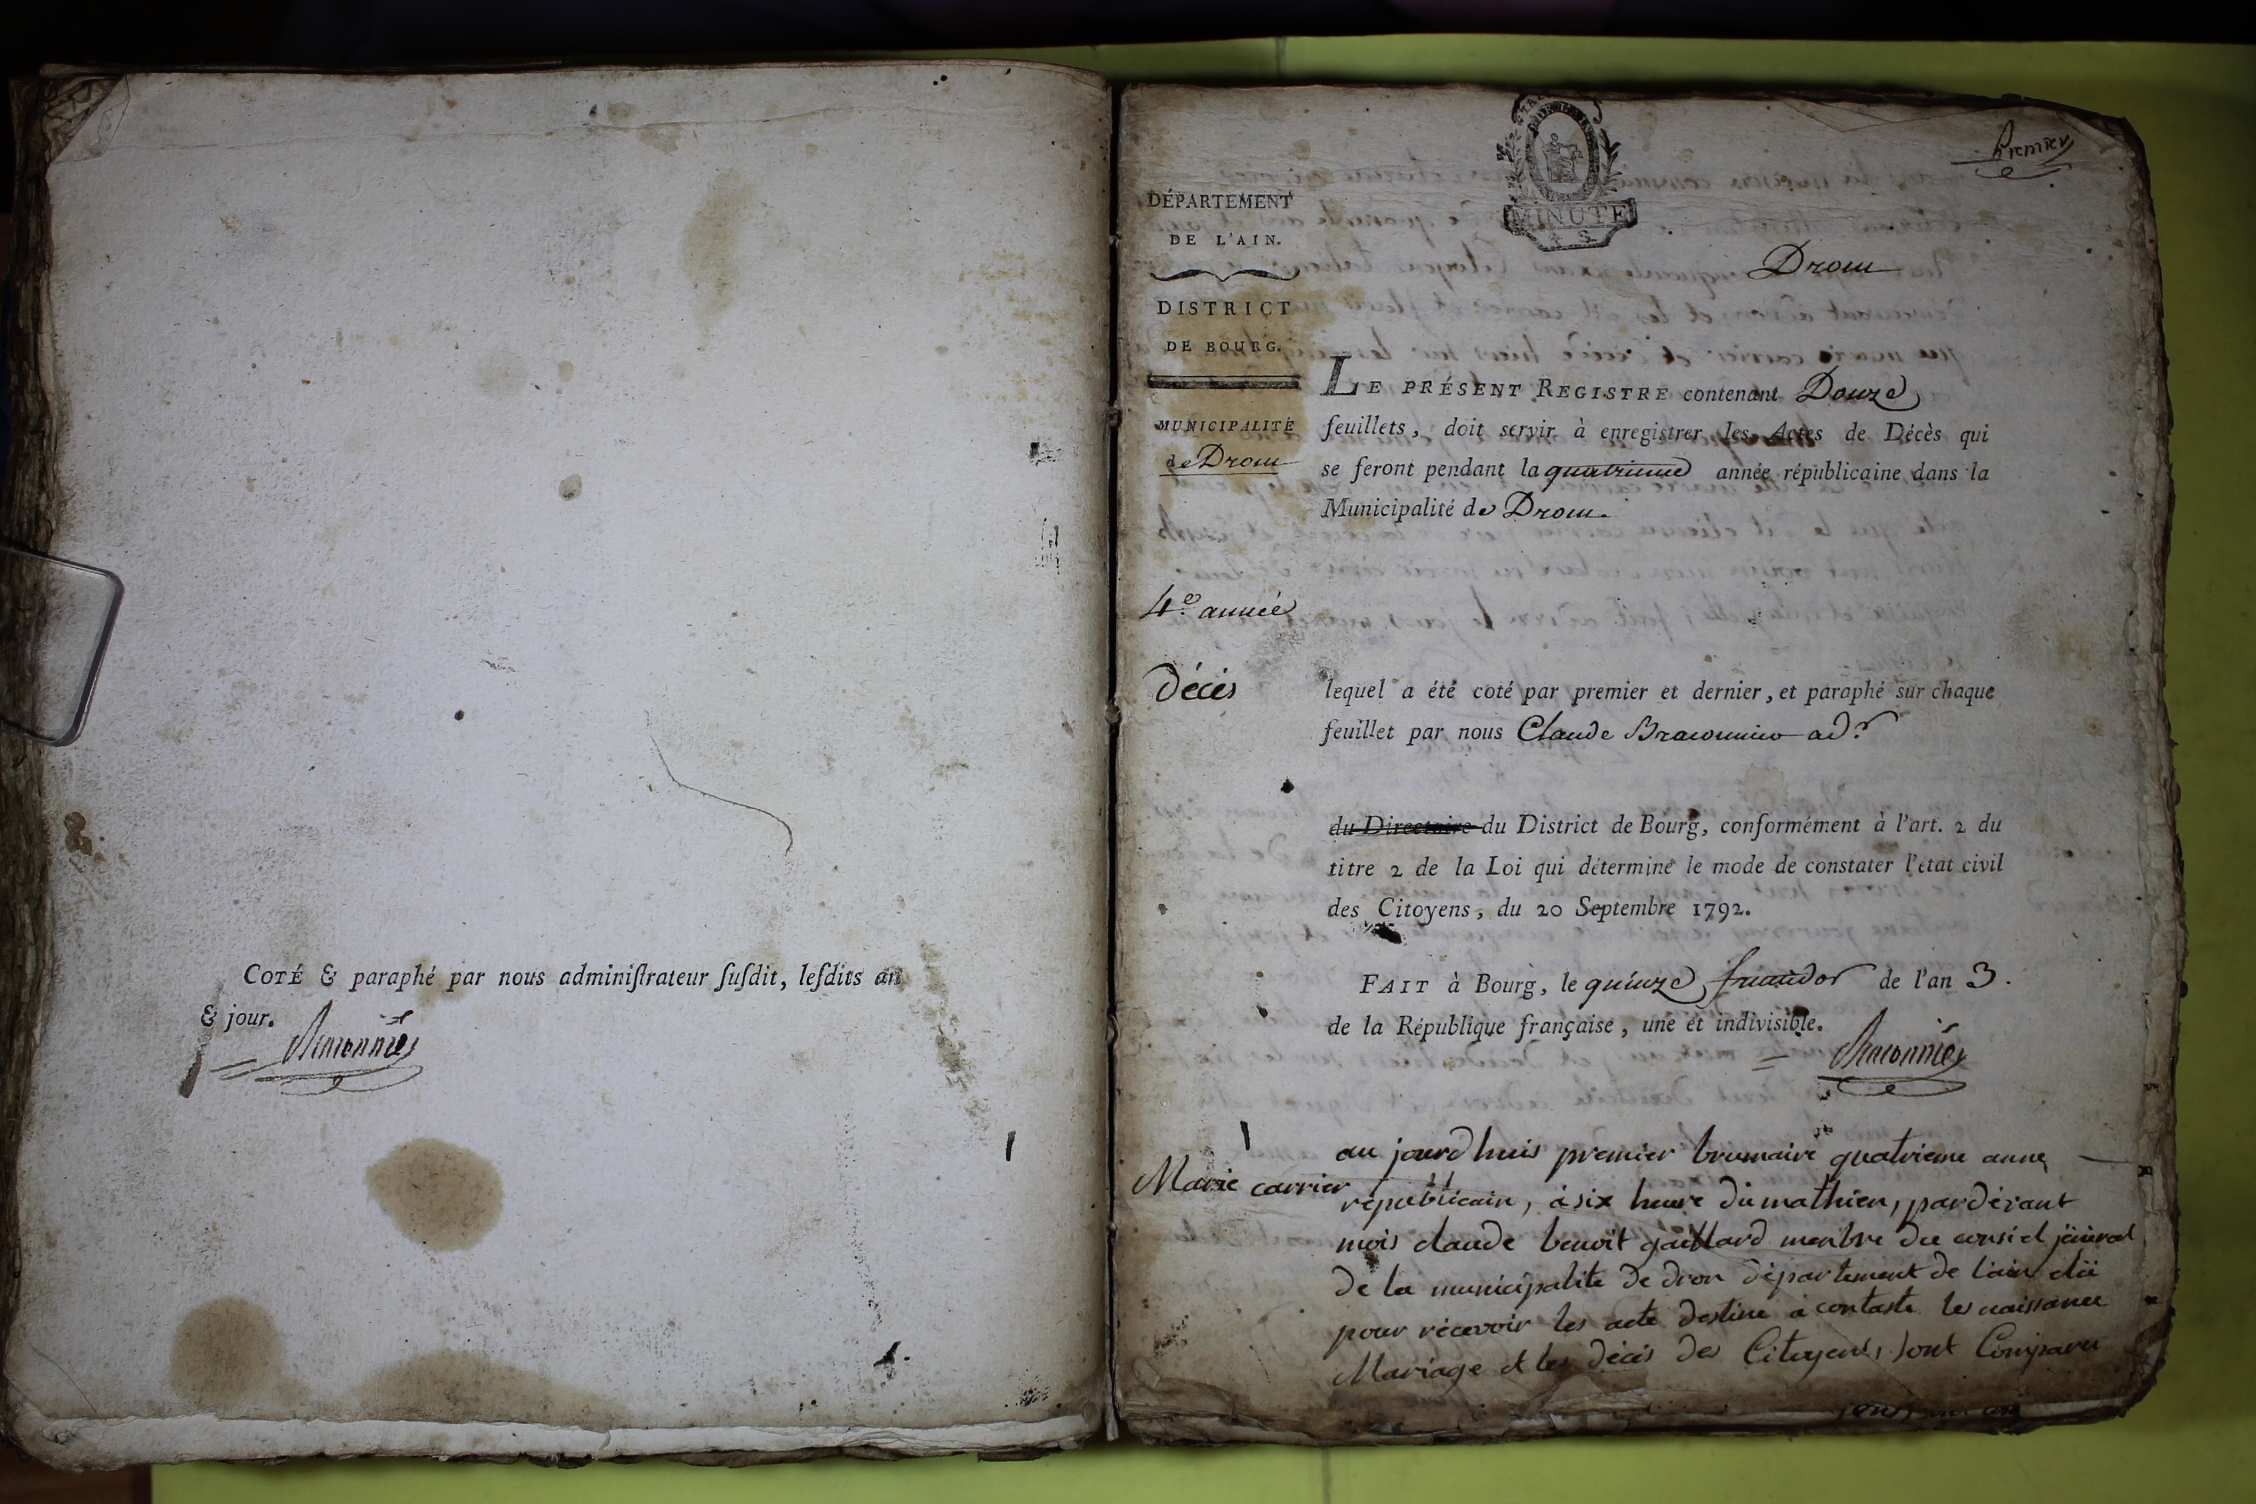 COTÉ & paraphé par nous adminiſtrateur ſuſdit, leſdits an
& jour.
Premier
MINUTE
DÉPARTEMENT
DE L'AIN.
DISTRICT
DE BOURG.
MUNICIPALITÉ
de Drom
4e. année
Décès
Marie carrier
Drom
LE PRÉSENT REGISTRE contenant Douze
feuillets, doit servir à enregistrer les Actes de Décès qui
se feront pendant la quatrieme année républicaine dans la
Municipalité de Drom.
lequel a été coté par premier et dernier, et paraphé sur chaque
feuillet par nous Claude Braconnier adr
du Directoire du District de Bourg, conformément à l'art. 2 du
titre 2 de la Loi qui détermine le mode de constater l'état civil
des Citoyens, du 20 Septembre 1792.
FAIT à Bourg, le quinze fructidor de l'an 3.
de la République française, une et indivisible.
Braconnier
au jourdhuis premier brumaire quatrieme anne
republicain, à six heure du mathien, pardevant
mois claude benoit gaillard menbre du consiel jéneral
de la municipalite de dron département de l'ain elü
pour récevoir les acte destine a contaste les naissance
Mariage et les décis des Citoyens, sont Comparu